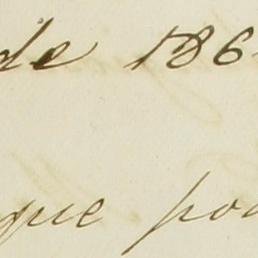 de 186
que